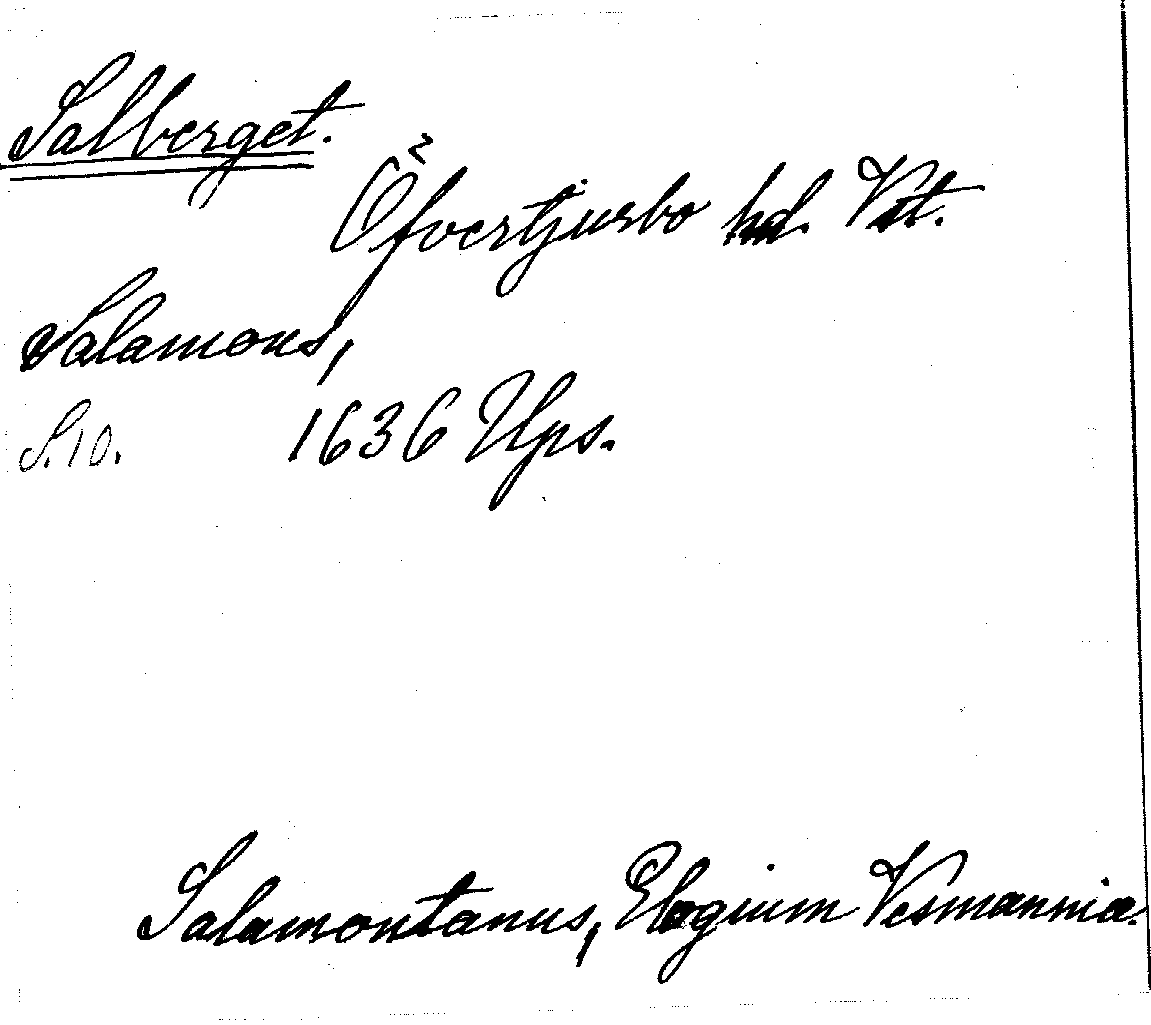 Salberget.
Öfvertjurbo hd. Vst.
Salamons,
S.10. 1636 Ups.
Salamontanus, Elogium Vesmanniæ.